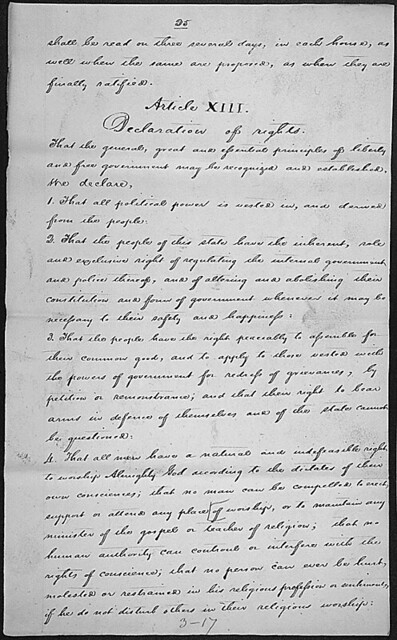 25
shall be read on three several days, in each house, as
well when the same are proposed, as when they are
finally ratified.
Article XIII.
Declaration of rights.
That the general, great and essential principles of liberty
and free government may be recognized and established,
We declare,
1. That all political power is vested in, and derived
from the people:
2. That the people of this state have the inherent, sole
and exclusive right of regulating the internal government
and police thereof, and of altering and abolishing their
constitution and form of government whenever it may be
necessary to their safety and happiness:
3. That the people have the right peaceably to assemble for
their common good, and to apply to those vested with
the powers of government for redress of grievances, by
petition or remonstrance; and that their right to bear
arms in defence of themselves and of the state cannot
be questioned:
4. That all men have a natural and indefeasible right
to worship Almighty God according to the dictates of their
own consciences; that no man can be compelled to erect,
support or attend any place of worship, or to maintain any
minister of the gospel or teacher of religion; that no
human authority can control or interfere with the
rights of conscience; that no person can ever be hurt,
molested or restrained in his religious profession or sentiments,
if he do not disturb others in their religious worship:
3-17